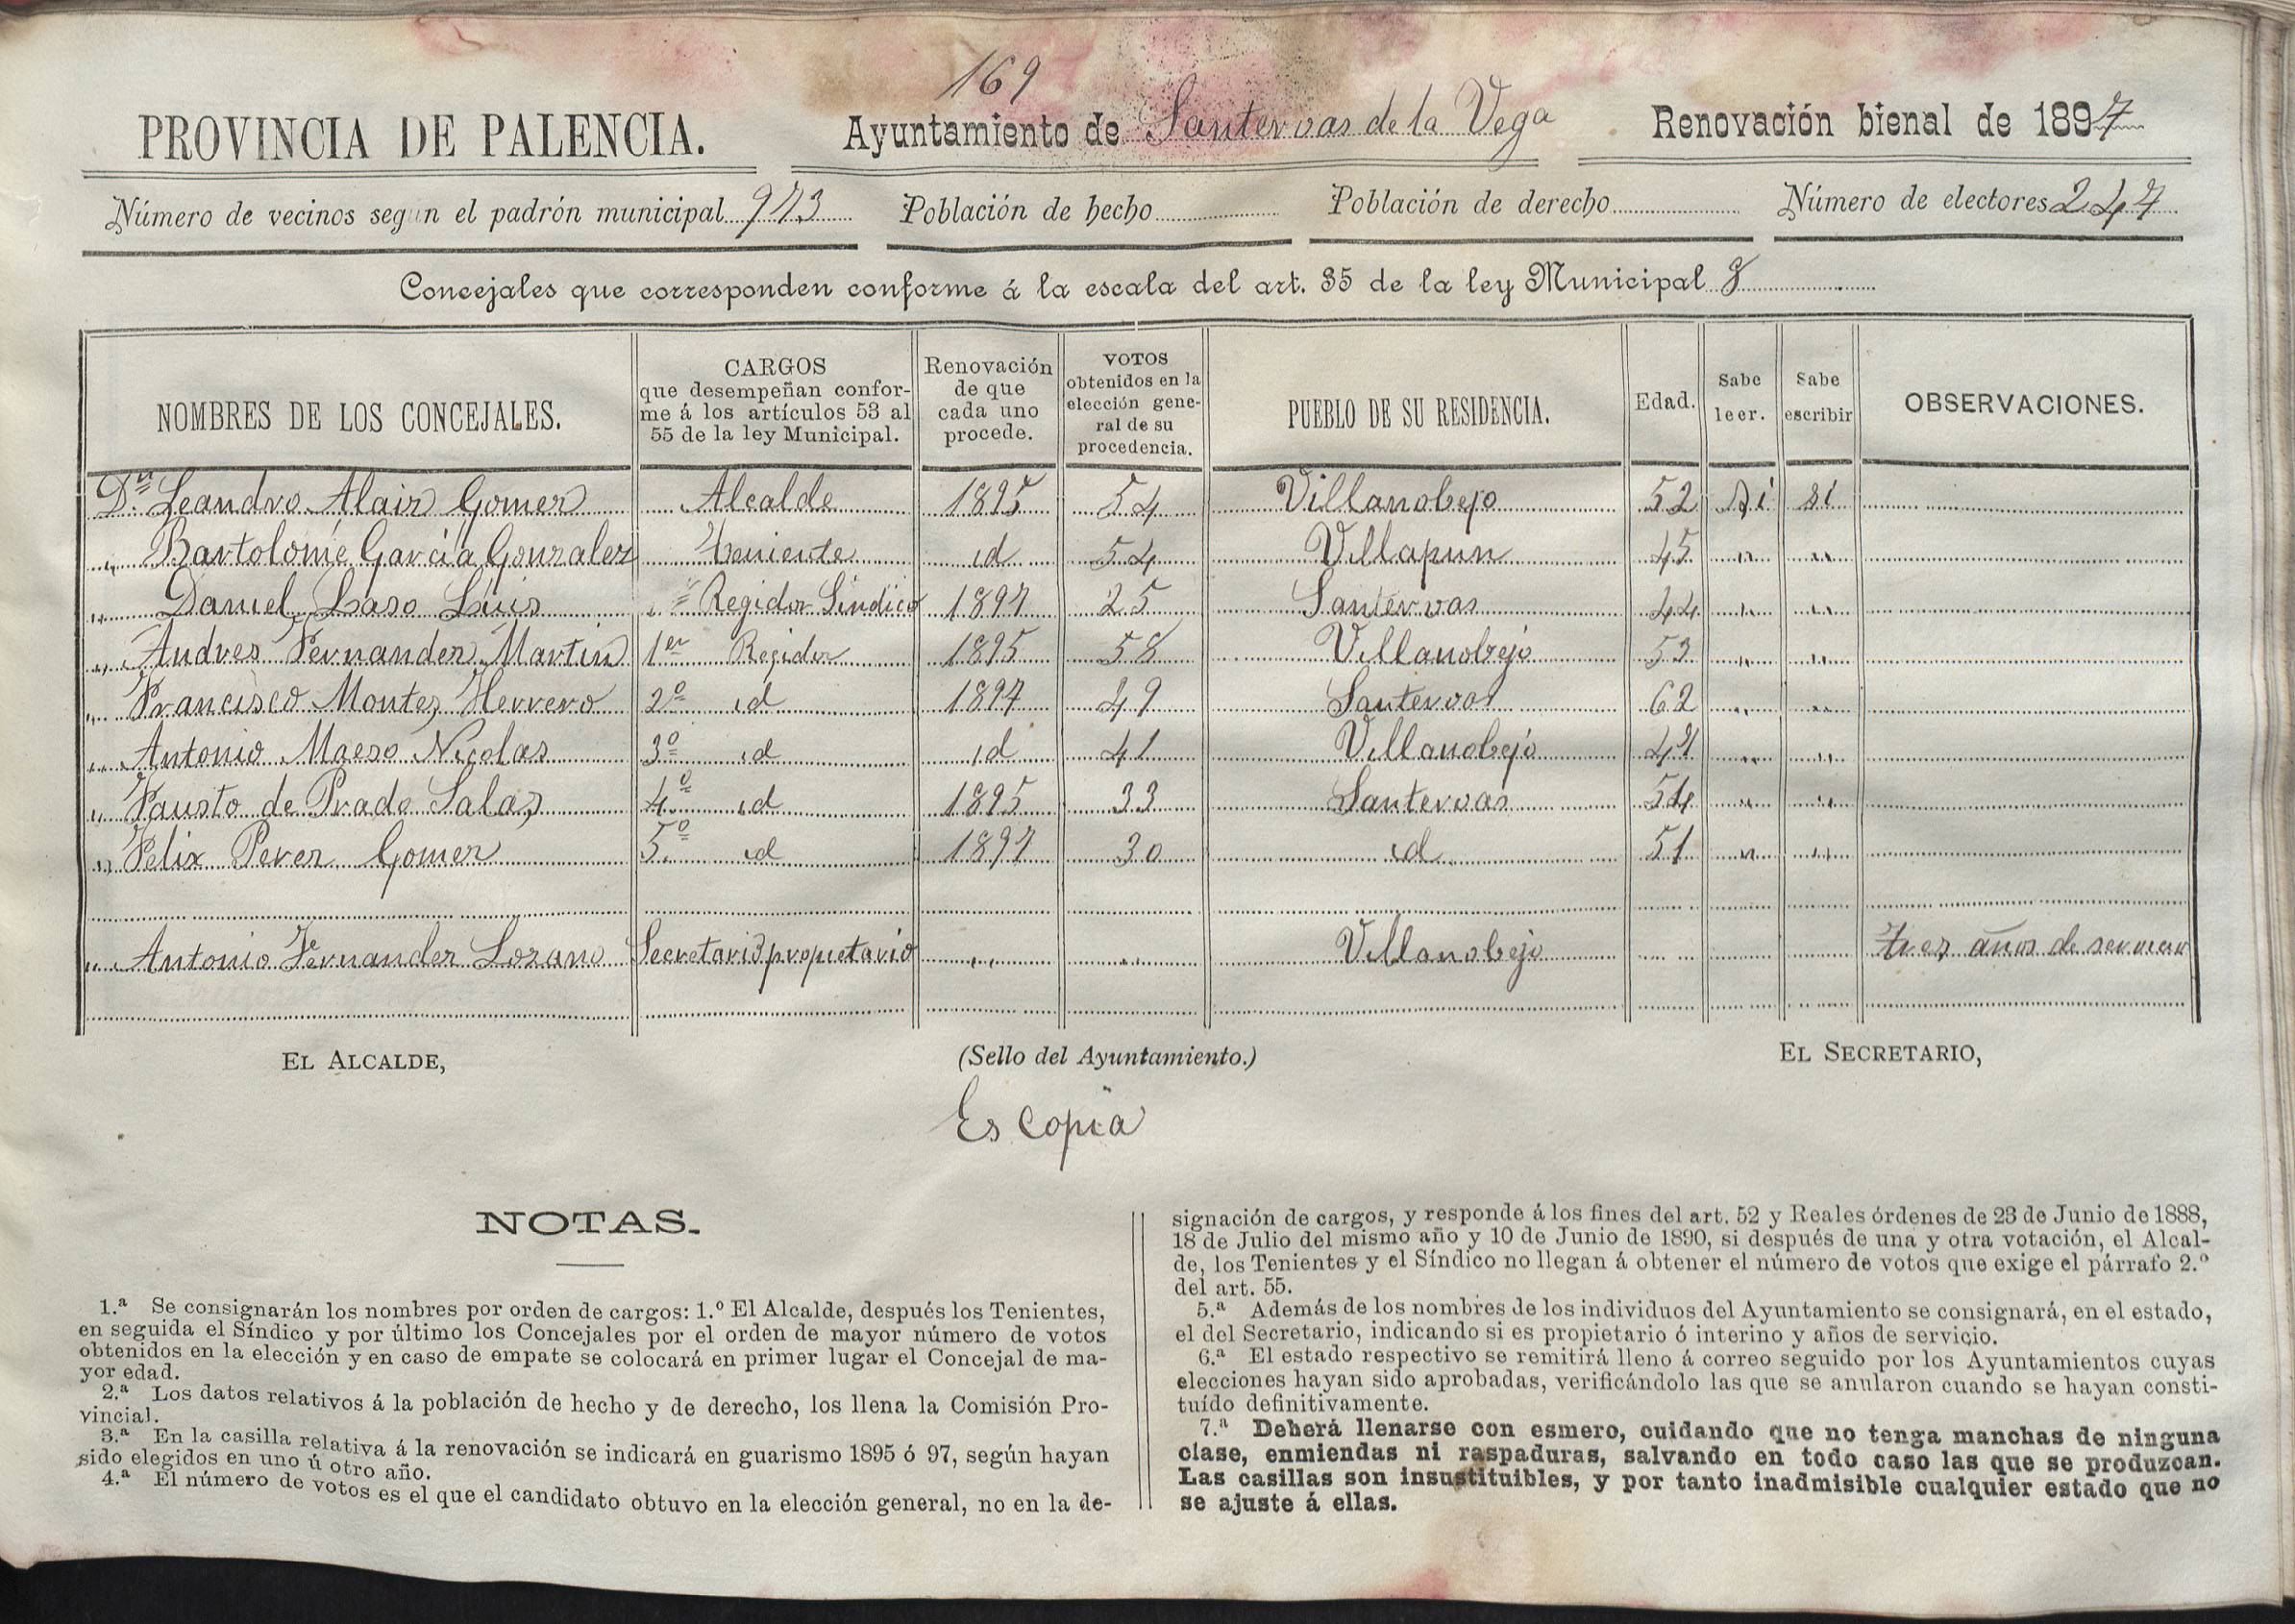 169
PROVINCIA DE PALENCIA. Ayuntamiento de Santervas de la Vega Renovación bienal de 1897
Número de vecinos según el padrón municipal 973 Población de hecho Población de derecho Número de electores 247
Concejales que corresponden conforme á la escala del art. 35 de la ley Municipal 8
NOMBRES DE LOS CONCEJALES. CARGOS que desempeñan conforme á los artículos 53 al 55 de la ley Municipal. Renovación de que cada uno procede. VOTOS obtenidos en la elección general de su procedencia. PUEBLO DE SU RESIDENCIA. Edad. Sabe leer. Sabe escribir OBSERVACIONES.
Dn Leandro Alair Gomez Alcalde 1895 54 Villanobejo 52 Si si
" Bartolomé García Gonzalez Teniente id 54 Villapun 45 " "
" Daniel Laso Luis " Regidor Sindico 1897 25 Santervas 44 " "
" Andres Fernandez Martin 1er Regidor 1895 58 Villanobejo 53 " "
" Francisco Montes Herrero 2º id 1897 49 Santervas 62 " "
" Antonio Maeso Nicolas 3º id id 41 Villanobejo " "
" Fausto de Prado Salas 4º id 1895 33 Santervas 54 " "
" Felix Perez Gomez 5º id 1897 30 id 51 " "
" Antonio Fernandez Lozano Secretario propietario " " Villanobejo tres años de servicio
EL ALCALDE, (Sello del Ayuntamiento.) EL SECRETARIO,
Es copia
NOTAS.
1.ª Se consignarán los nombres por orden de cargos: 1.º El Alcalde, después los Tenientes,
en seguida el Síndico y por último los Concejales por el orden de mayor número de votos
obtenidos en la elección y en caso de empate se colocará en primer lugar el Concejal de ma-
yor edad.
2.ª Los datos relativos á la población de hecho y de derecho, los llena la Comisión Pro-
vincial.
3.ª En la casilla relativa á la renovación se indicará en guarismo 1895 ó 97, según hayan
sido elegidos en uno ú otro año.
4.ª El número de votos es el que el candidato obtuvo en la elección general, no en la de-
signación de cargos, y responde á los fines del art. 52 y Reales órdenes de 23 de Junio de 1888,
18 de Julio del mismo año y 10 de Junio de 1890, si después de una y otra votación, el Alcal-
de, los Tenientes y el Síndico no llegan á obtener el número de votos que exige el párrafo 2.º
del art. 55.
5.ª Además de los nombres de los individuos del Ayuntamiento se consignará, en el estado,
el del Secretario, indicando si es propietario ó interino y años de servicio.
6.ª El estado respectivo se remitirá lleno á correo seguido por los Ayuntamientos cuyas
elecciones hayan sido aprobadas, verificándolo las que se anularon cuando se hayan consti-
tuído definitivamente.
7.ª Deberá llenarse con esmero, cuidando que no tenga manchas de ninguna
clase, enmiendas ni raspaduras, salvando en todo caso las que se produzcan.
Las casillas son insustituibles, y por tanto inadmisible cualquier estado que no
se ajuste á ellas.